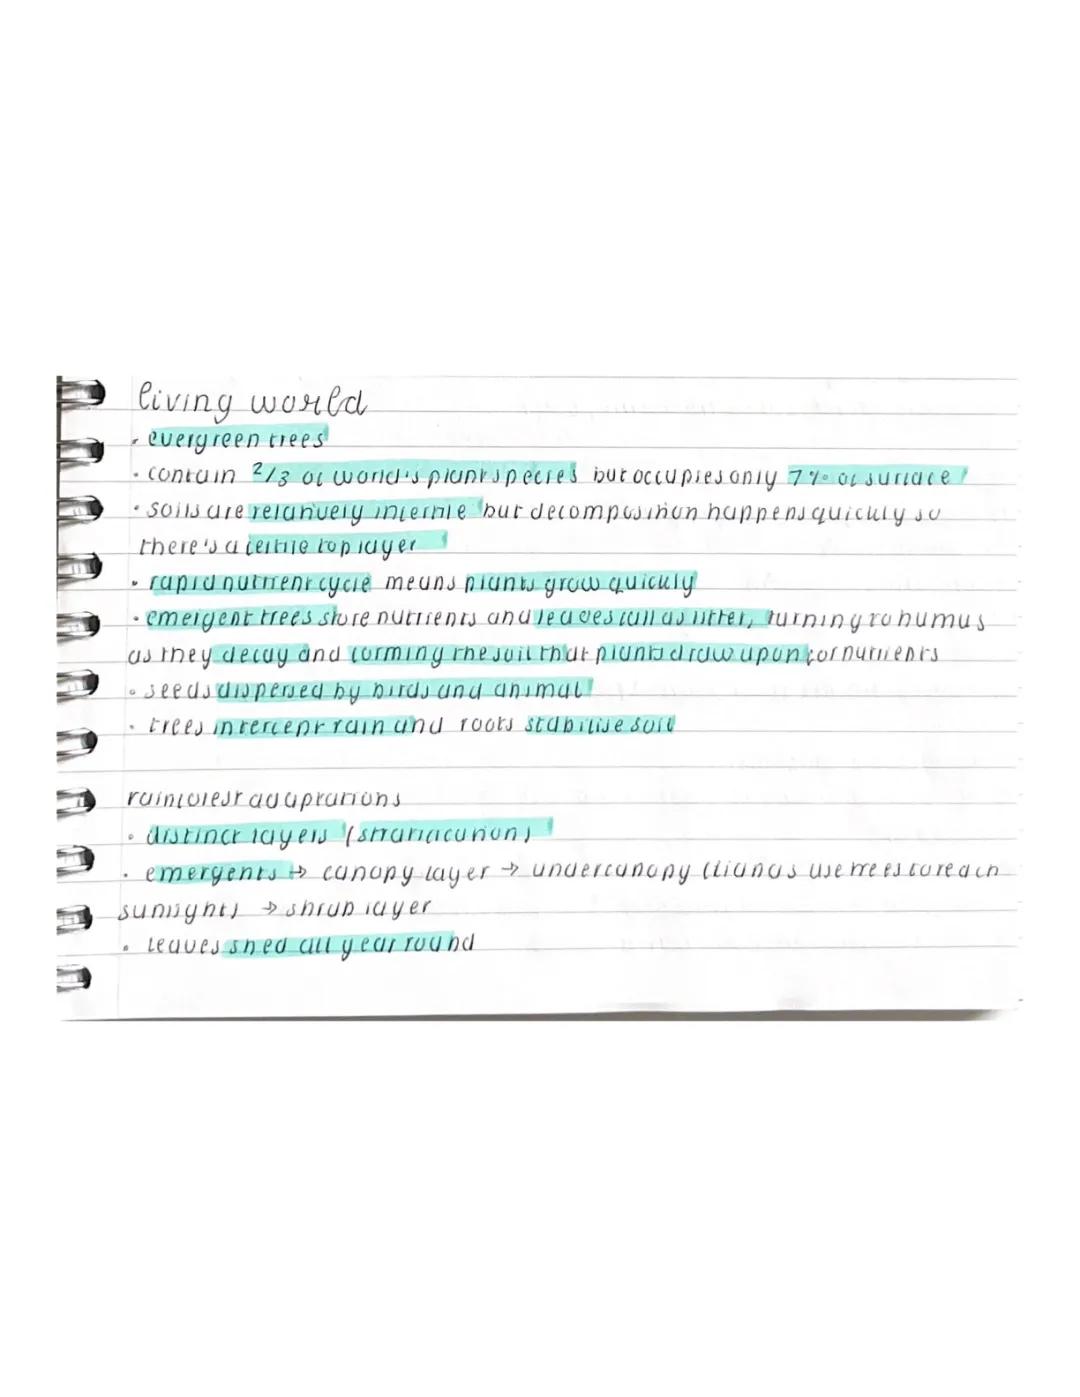 living world
· evergreen trees
· contain 2/3 of world's plant species but occupies only 7% of surface
· soils are relatively infertile but decomposition happens quickly so
there's a fertile top layer
· rapid nutrient cycle means plants grow quickly
· emergent trees store nutrients and leaves fall as litter, turning to humus
as they decay and forming the soil that plants draw upon for nutrients
· seeds dispersed by birds and animal
· trees intercept rain and roots stabilise soil
rainforest adaptations
· distinct layers (stratification)
· emergents → canopy layer → undercanopy (lianas use trees to reach
sunlight) → shrub layer
· leaves shed all year round